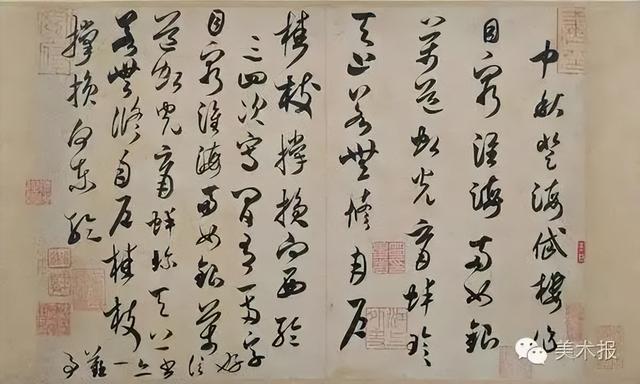 中秋登海岱樓作
目窮淮海兩如銀
萬道虹光育蚌珍
天上若無修月戶
桂枝撐損向西輪
三四次寫間有一兩字
好信書亦一難事
目窮淮海兩如銀萬
道虹光育蚌珍天上
若無修月戶桂枝
撐損向東輪
美术报